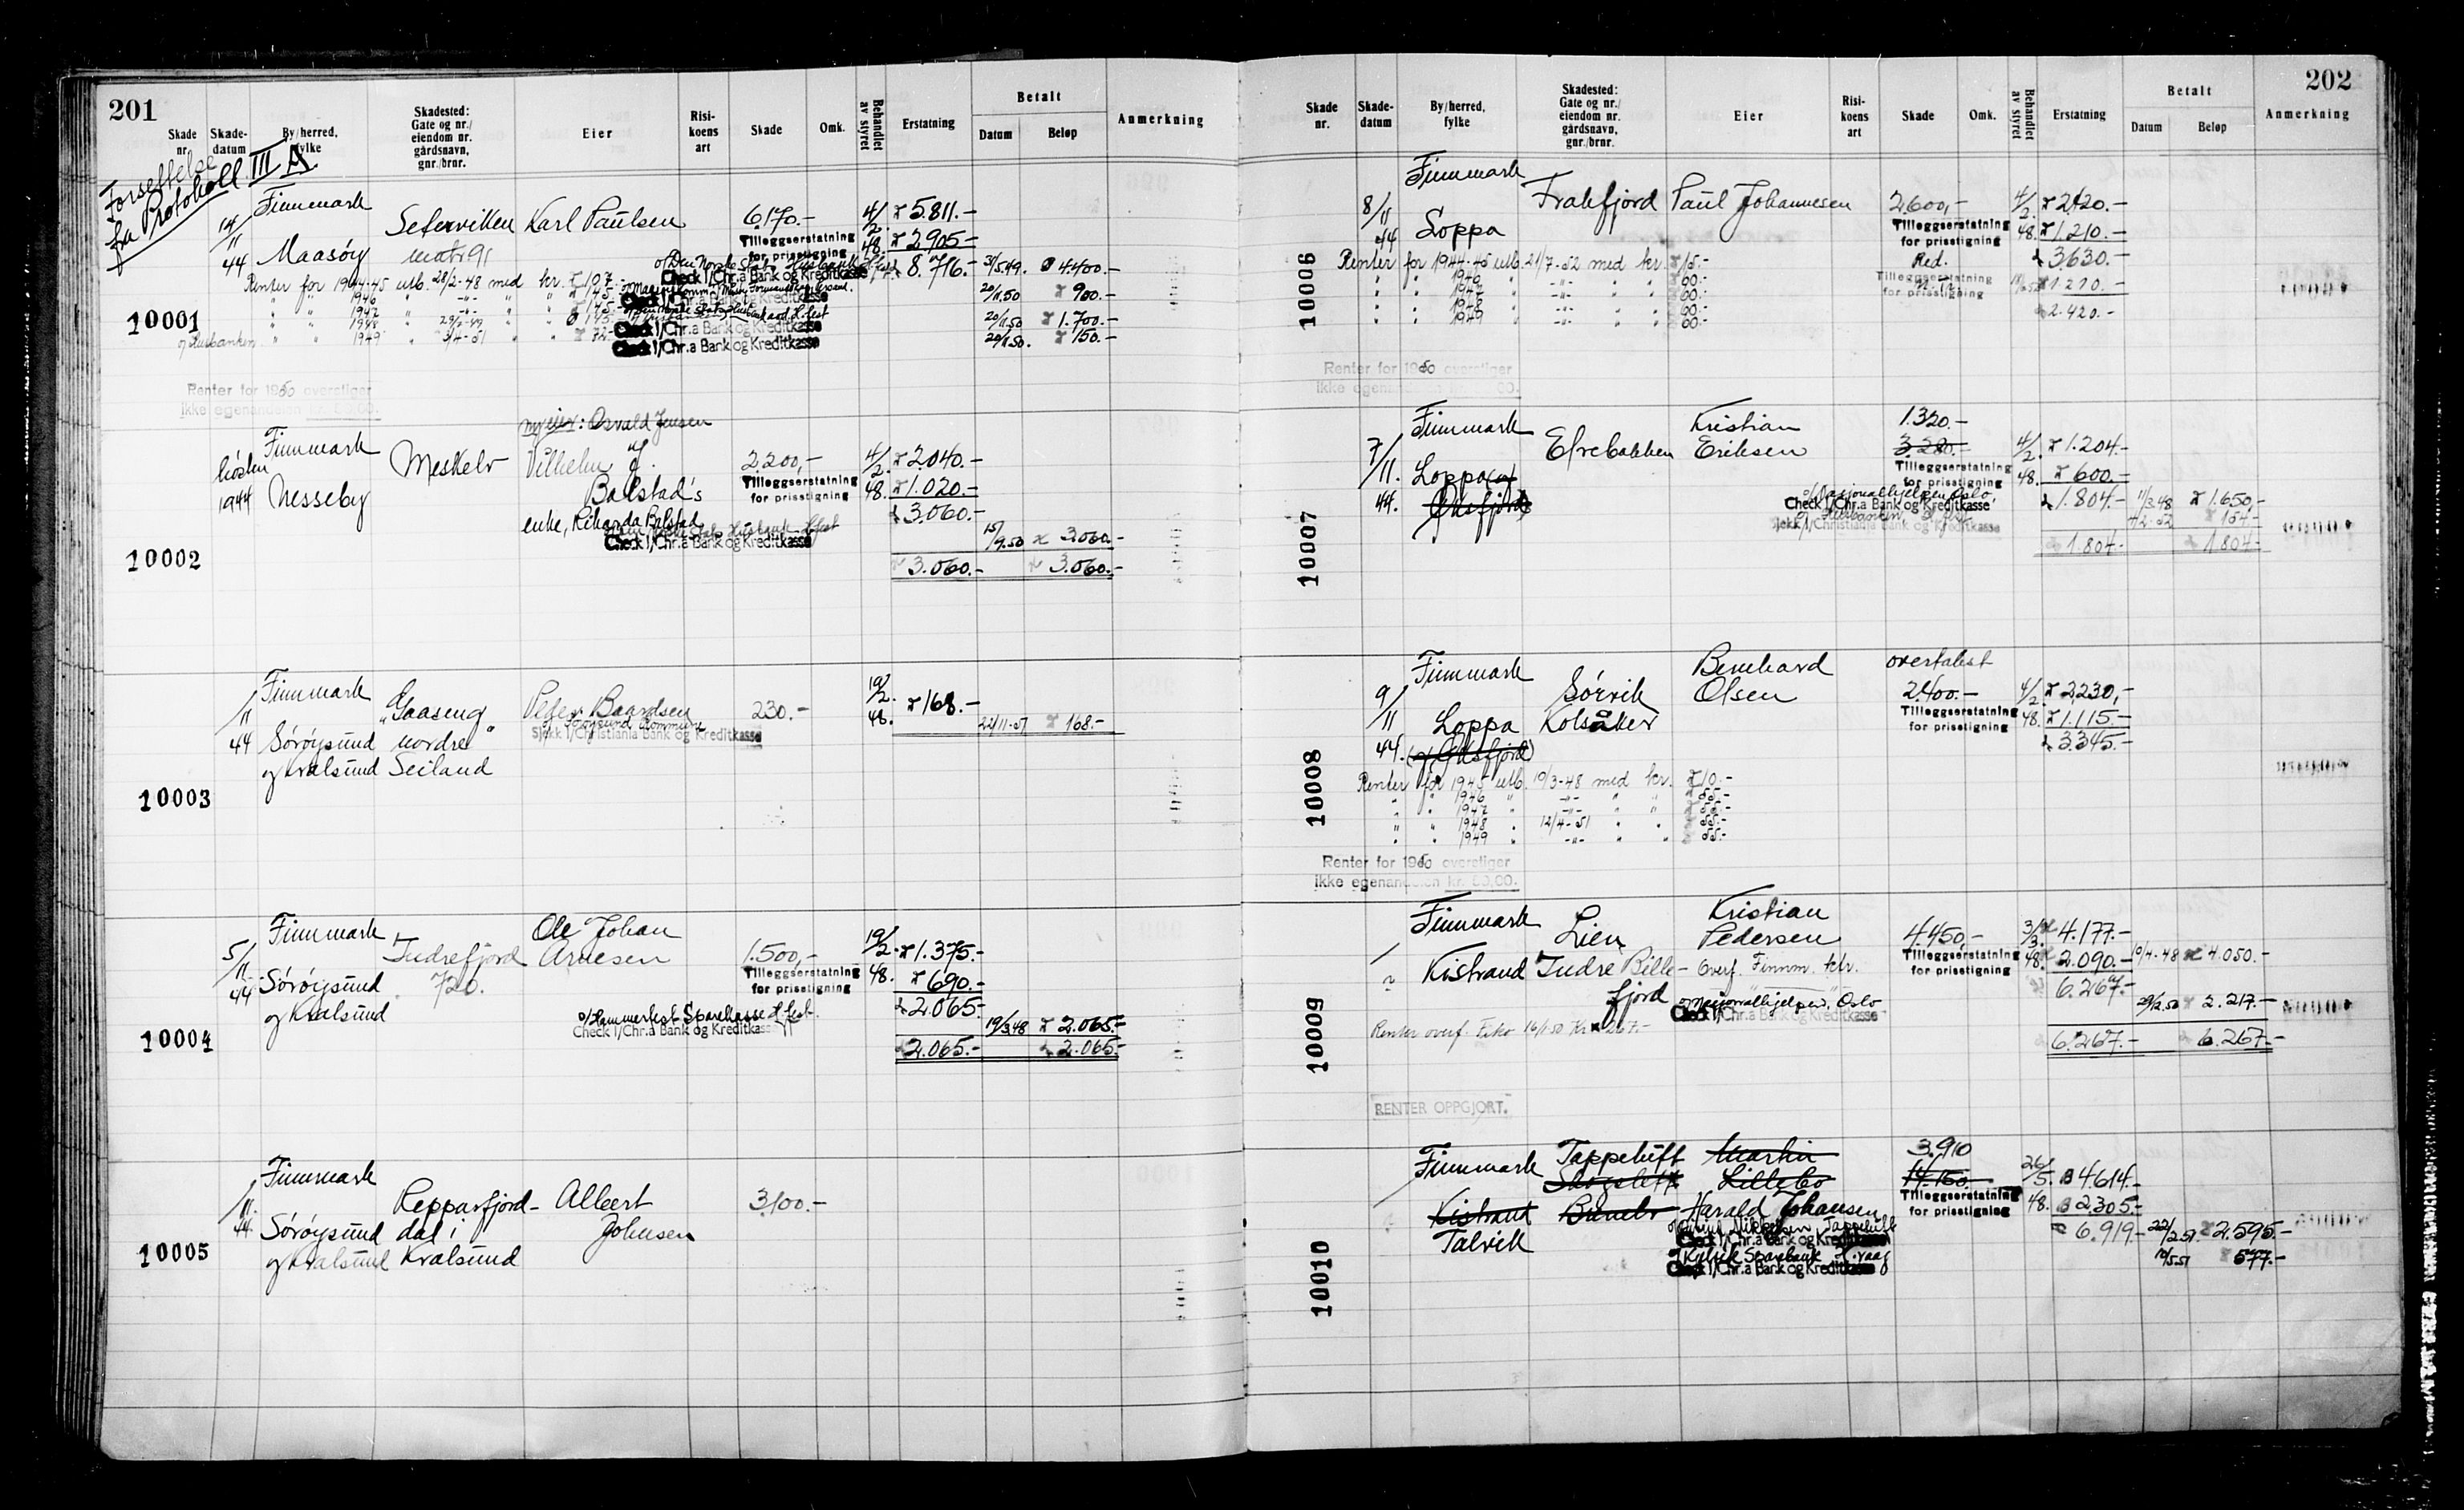 201
Skade nr. Skade-datum By/herred, fylke Skadested: Gate og nr./ eiendom nr. gårdsnavn, gnr./brnr. Eier Risi-koens art Skade Omk. Behandlet av styret Erstatning Betalt Datum Beløp Anmerkning
Forsettelse
fra Protokoll III A
Finnmark
14/11 44 Maasøy Karl Paulsen 6.170.- 4/2. 48. 5.811.-
Tilleggserstatning for prisstigning 2905.-
8.716.- 3/5.49. 4.400.-
Check 1/Chr.a Bank og Kreditkasse
Renter for 1944-45 utb. 28/2-48 med kr. 107.-
" " 1946 " -"- " "
Check 1/Chr.a Bank og Kreditkasse 20/1.50 900.-
" " 1947 " -"- " "
10001
" " 1948 "
Check 1/Chr.a Bank og Kreditkasse 20/1.50 1.700.-
" " 1949 " 3/4-51 " "
Check 1/Chr.a Bank og Kreditkasse 20/1.50. 150.-
Renter for 1950 overstiger
ikke egenandelen kr. 60,00.
ny eier: Osvald Jensen
Finnmark
høsten 1944 Nesseby Meskelv Vilhelm 2.200,- 4/2. 48. 2.040.-
Balstad's Tilleggserstatning for prisstigning 1.020.-
enke, Rikarda Balstad 3.060.-
Check 1/Chr.a Bank og Kreditkasse 15/9.50 3.060.-
10002 3.060.- 3.060.-
Finnmark
/11 44 "Gaaseng Peder Baardsen 230.- 19/2. 48. 168.-
Sørøysund nordre" Sørøysund kommune
Sjekk 1/Christiania Bank og Kreditkasse 22/11-51 168.-
og Kvalsund Seiland
10003
Finnmark Ole Johan
5/11. 44 Indrefjord Arnesen 1.500,- 19/2. 48. 1.375.-
Sørøysund 720. Tilleggserstatning for prisstigning 690.-
og Kvalsund 2.065.-
o/Hammerfest Sparekasse H.fest.
Check 1/Chr.a Bank og Kreditkasse 19/3.48 2.065.-
10004 2.065.- 2.065.-
Finnmark
/11. 44 Repparfjord- Albert 3.100.-
Sørøysund dal i Johnsen
10005 og Kvalsund Kvalsund
202
Skade nr. Skade-datum By/herred, fylke Skadested: Gate og nr./ eiendom nr. gårdsnavn, gnr./brnr. Eier Risi-koens art Skade Omk. Behandlet av styret Erstatning Betalt Datum Beløp Anmerkning
Finnmark
8/11 44 Loppa Frakfjord Paul Johannesen 2.600,- 4/2. 48. 2420.-
Tilleggserstatning for prisstigning 1.210.-
Red. 3.630.-
Renter for 1944-45 utb. 21/7-52 med kr. 15.-
Tilleggserstatning for prisstigning 1.210.-
" " 1946 " -"- " " 60.-
" " 1947 " -"- " " 60.-
" " 1948 " -"- " " 60.- 2.420.-
" " 1949 " -"- " " 60.-
10006
Renter for 1950 overstiger
ikke egenandelen kr. 60,00.
Finnmark Kristian 1.320.-
7/11. 44. Loppa Eriksen 4/2. 48. 1.204.-
Øksfjord Tilleggserstatning for prisstigning 600.-
o/Nasjonalhjelpen Oslo.
Check 1/Chr.a Bank og Kreditkasse 1.804.- 11/3.48 1.650,-
Sjekk 1/Christiania Bank og Kreditkasse 154.-
10007 1.804.- 1.804.-
Finnmark Bernhard overtakst
9/11 44. Loppa Sørvik Olsen 2.400.- 4/2. 48. 2.230,-
Kolsåker Tilleggserstatning for prisstigning 1.115.-
(Øksfjord) 3.345.-
Renter for 1945 utb. 10/3-48 med kr. 10.-
" " 1946 " -"- " " 55.-
" " 1947 " -"- " " 55.-
" " 1948 " 12/4-51 " " 55.-
" " 1949 " -"- " " 55.-
10008
Renter for 1950 overstiger
ikke egenandelen kr. 60,00.
Finnmark Lien Kristian
Pedersen 4.450,- 3/3. 48. 4.177.-
Kistrand Indre Bille- Overf. Finnm. ktr. Tilleggserstatning for prisstigning 2.090.- 10/4-48 4.050.-
fjord o/Nasjonalhjelpen, Oslo 6.267.-
Check 1/Chr.a Bank og Kreditkasse 29/12.50 2.217.-
Renter overf. Fiko 16/1.50 Kr. 267.-
10009 6.267.- 6.267.-
RENTER OPPGJORT.
Finnmark Tappeluft Martin 3.910
Lillebo 14.150.- 26/5. 48. 4614.-
Kistrand Harald Johansen Tilleggserstatning for prisstigning 2.305.-
Talvik Check 1/Chr.a Bank og Kreditkasse 6.919.- 22/2.51 2.595.-
Check 1/Chr.a Bank og Kreditkasse 10/5.51 577.-
10010